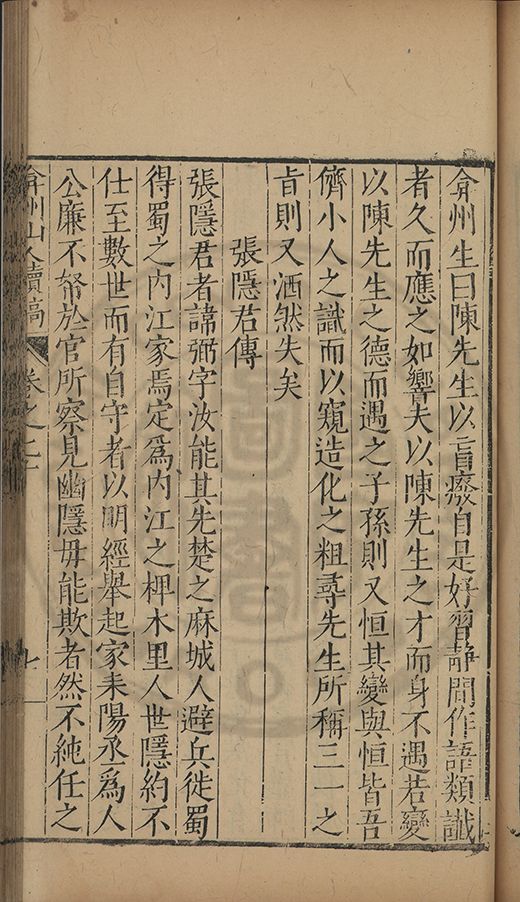 弇州生曰陳先生以盲癈自是好習靜間作語類讖
者久而應之如響夫以陳先生之才而身不遇若變
以陳先生之德而遇之子孫則又恒其變與恒皆吾
儕小人之識而以窺造化之粗尋先生所稱三一之
旨則又洒然失矣
張隱君傳
張隱君者諱弼字汝能其先楚之麻城人避兵徙蜀
得蜀之内江家焉定爲内江之椑木里人世隱約不
仕至數世而有自守者以明經舉起家耒陽丞爲人
公廉不帑於官所察見幽隱毋能欺者然不純任之
弇州山人續稿 卷之 七